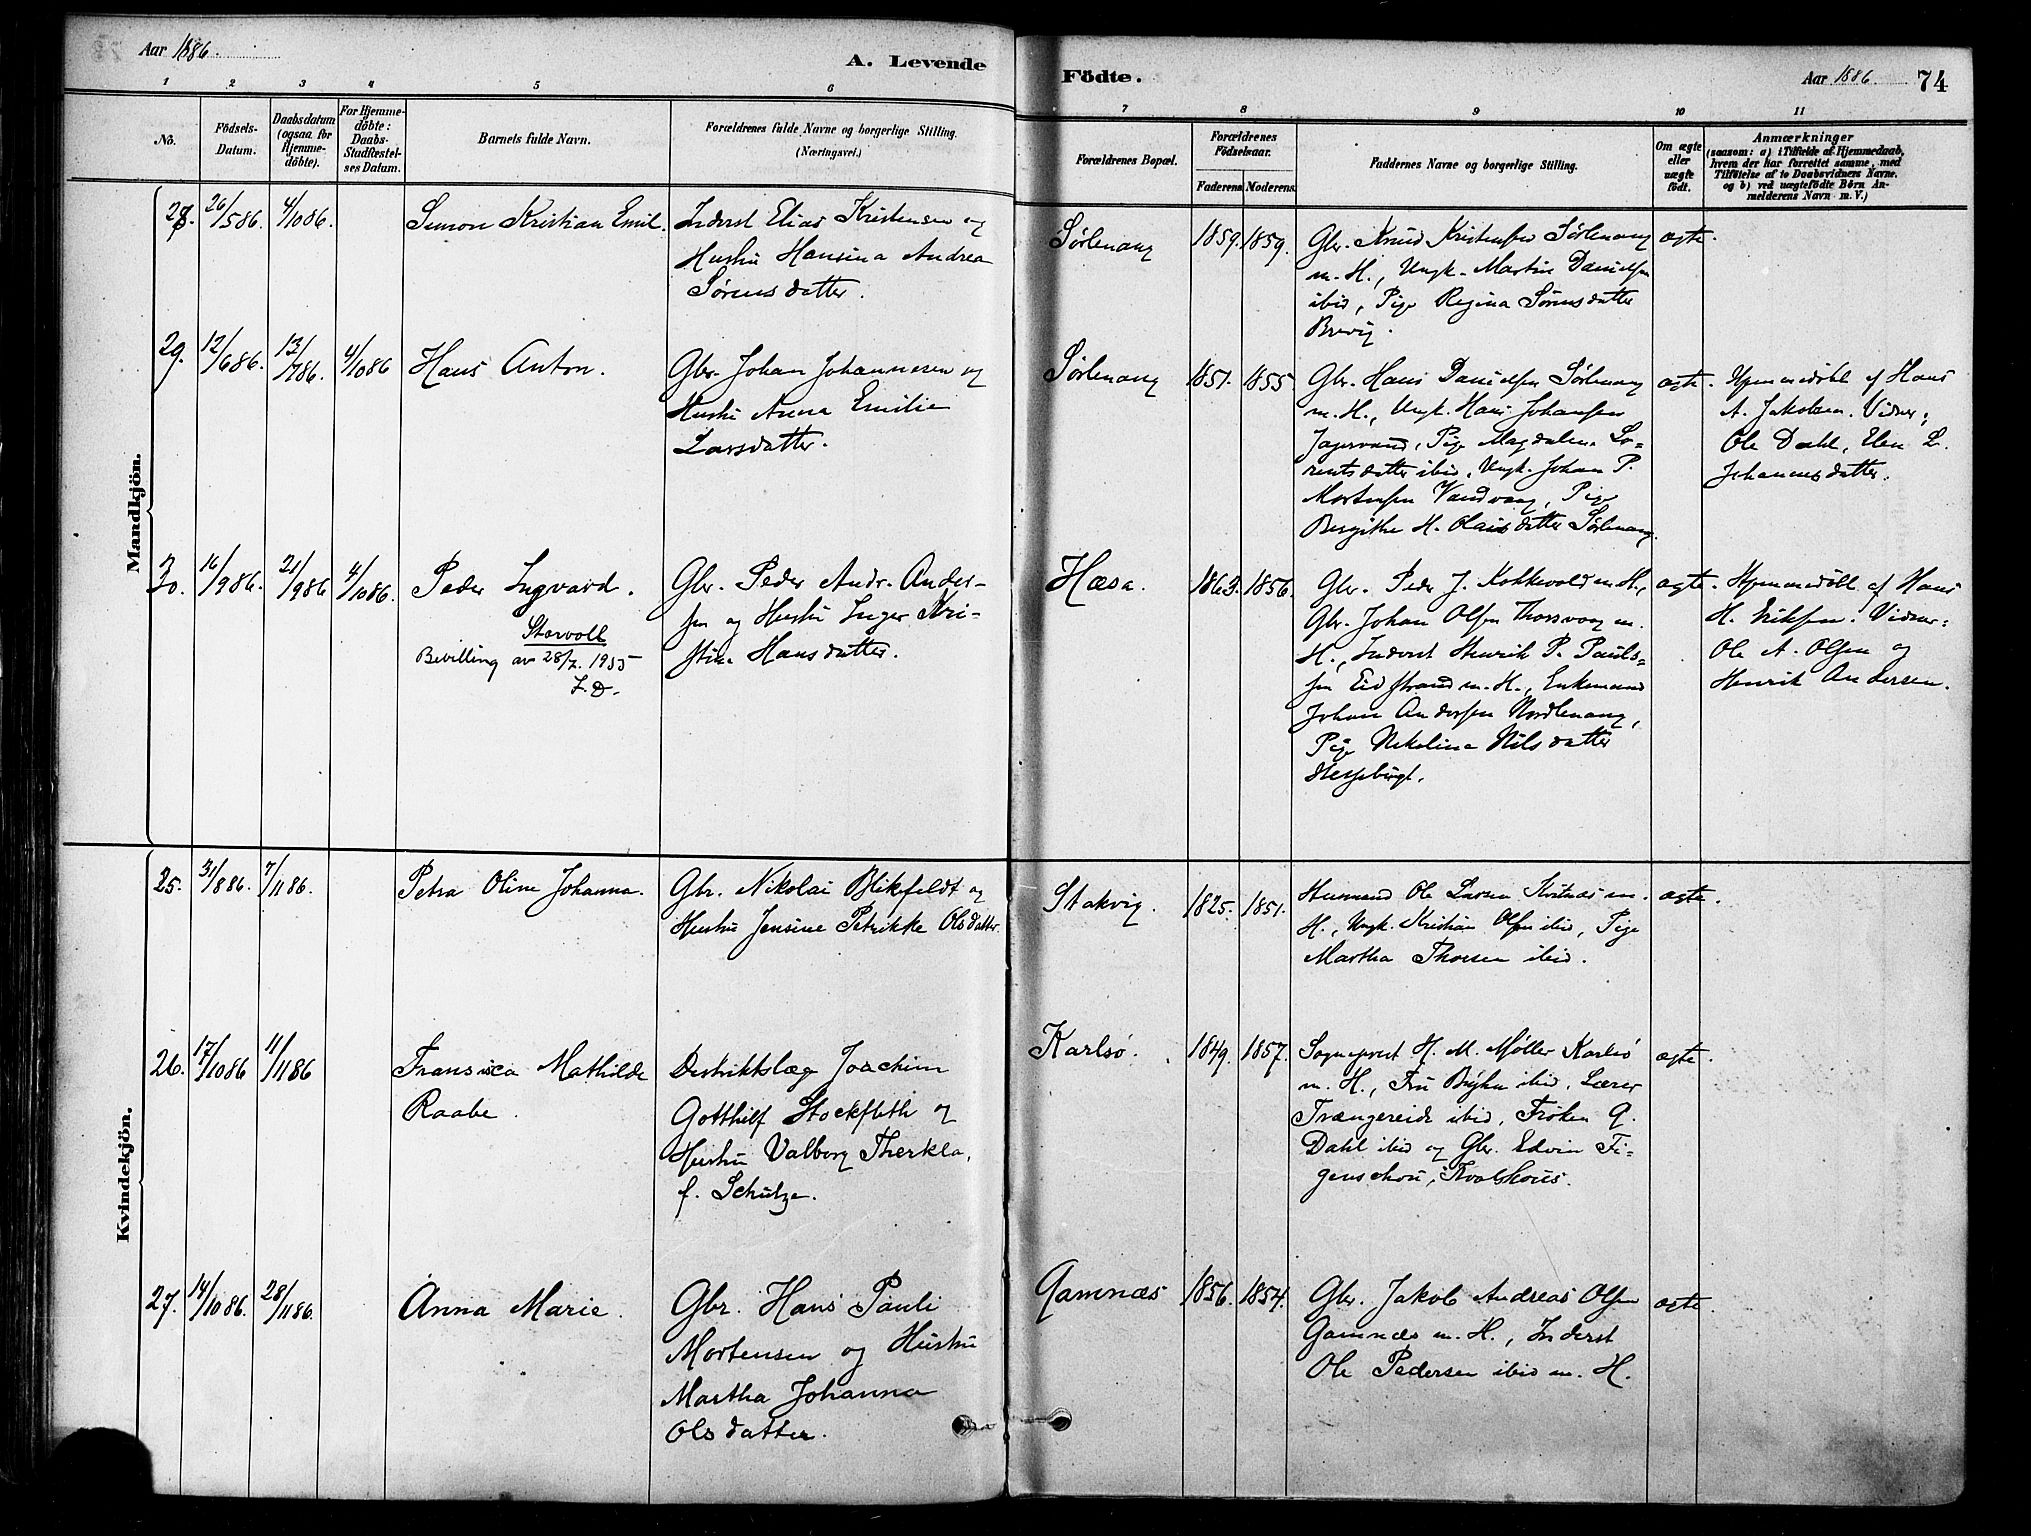 Aar 1886.
A. Levende
Födte.
Aar 1886.
74
1 2 3 4 5 6 7 8 9 10 11
No.
Födsels-
Datum.
Daabsdatum
(ogsaa for
Hjemme-
döbte).
For Hjemme-
döbte:
Daabs-
Stadfæstel-
ses Datum.
Barnets fulde Navn.
Forældrenes fulde Navne og borgerlige Stilling.
(Næringsvei.)
Forældrenes Bopæl.
Forældrenes
Födselsaar.
Faderens Moderens
Faddernes Navne og borgerlige Stilling.
Om ægte
eller
uægte
födt.
Anmærkninger
(saasom: a) i Tilfælde af Hjemmedaab,
hvem der har forrettet samme, med
Tilføielse af to Daabsvidners Navne.
og b) ved uægtefödte Börn An-
melderens Navn m. V.)
Mandkjön.
28. 26/5 86. 4/10 86.
Simon Kristian Emil.
Inderst Elias Kristensen og
Hustru Hansina Andrea
Sørensdatter.
Sørlenang
1859. 1859.
Gbr. Knud Kristensen Sørlenang
m. H., Ungk. Martin Danielsen
ibid, Pige Regina Sørensdatter
Brevig.
ægte.
29. 12/6 86. 13/7 86. 4/10 86
Hans Anton.
Gbr. Johan Johannesen og
Hustru Anna Emilie
Larsdatter.
Sørlenang
1851. 1855
Gbr. Hans Danielsen Sørlenang
m. H., Ungk. Hans Johansen
Jægervand, Pige Magdalena Lo-
rentsdatter ibid, Ungk. Johan P.
Mortensen Vandvaag, Pige
Bergithe H. Olausdatter Sørlenang.
ægte.
Hjemmedøbt af Hans
A. Jakobsen. Vidner:
Ole Dahl, Elen L.
Johannesdatter.
30. 16/9 86. 21/9 86 4/10 86.
Peder Ingvard.
Storvoll
Bevilling av 28/7. 1955
J. D.
Gbr. Peder Andr. Ander-
sen og Hustru Inger Kri-
stine Hansdatter.
Hæsa.
1863. 1856.
Gbr. Peder J. Kokkvold m. H.,
Gbr. Johan Olsen Thorsvaag m.
H., Inderst Henrik P. Pauls-
sen Eidstrand m. H., Enkemand
Johan Andersen Nordlenang,
Pige Nikolina Nilsdatter
ægte.
Hjemmedøbt af Hans
H. Eriksen. Vidner:
Ole A. Olsen og
Henrik Andersen.
Kvindekjön.
25. 31/8 86. 7/11 86.
Petra Oline Johanna.
Gbr. Nikolai Blikfeldt og
Hustru Jensine Petrikke Olsdatter.
Stakvig.
1825. 1851.
Husmand Ole Larsen Kvitnæs m.
H., Ungk. Kristian Olsen ibid, Pige
Martha Thoresen ibid.
ægte.
26. 17/10 86 11/11 86
Fransisca Mathilde
Raabe.
Distriktslæge Joachim
Gotthilf Stockfleth og
Hustru Valborg Therkla,
f. Schulze.
Karlsø.
1849. 1857.
Sogneprest H. M. Møller Karlsø
m. H., Fru Bryhn ibid, Lærer
Trængereid ibid, Frøken G.
Dahl ibid og Gbr. Edvin Fi-
genschou, Kvalshous.
ægte.
27. 14/10 86. 28/11 86.
Anna Marie.
Gbr. Hans Pauli
Mortensen og Hustru
Martha Johanna
Olsdatter.
Gamnæs
1856. 1854.
Gbr. Jakob Andreas Olsen
Gamnæs m. H., Inderst
Ole Pedersen ibid m. H.
ægte.